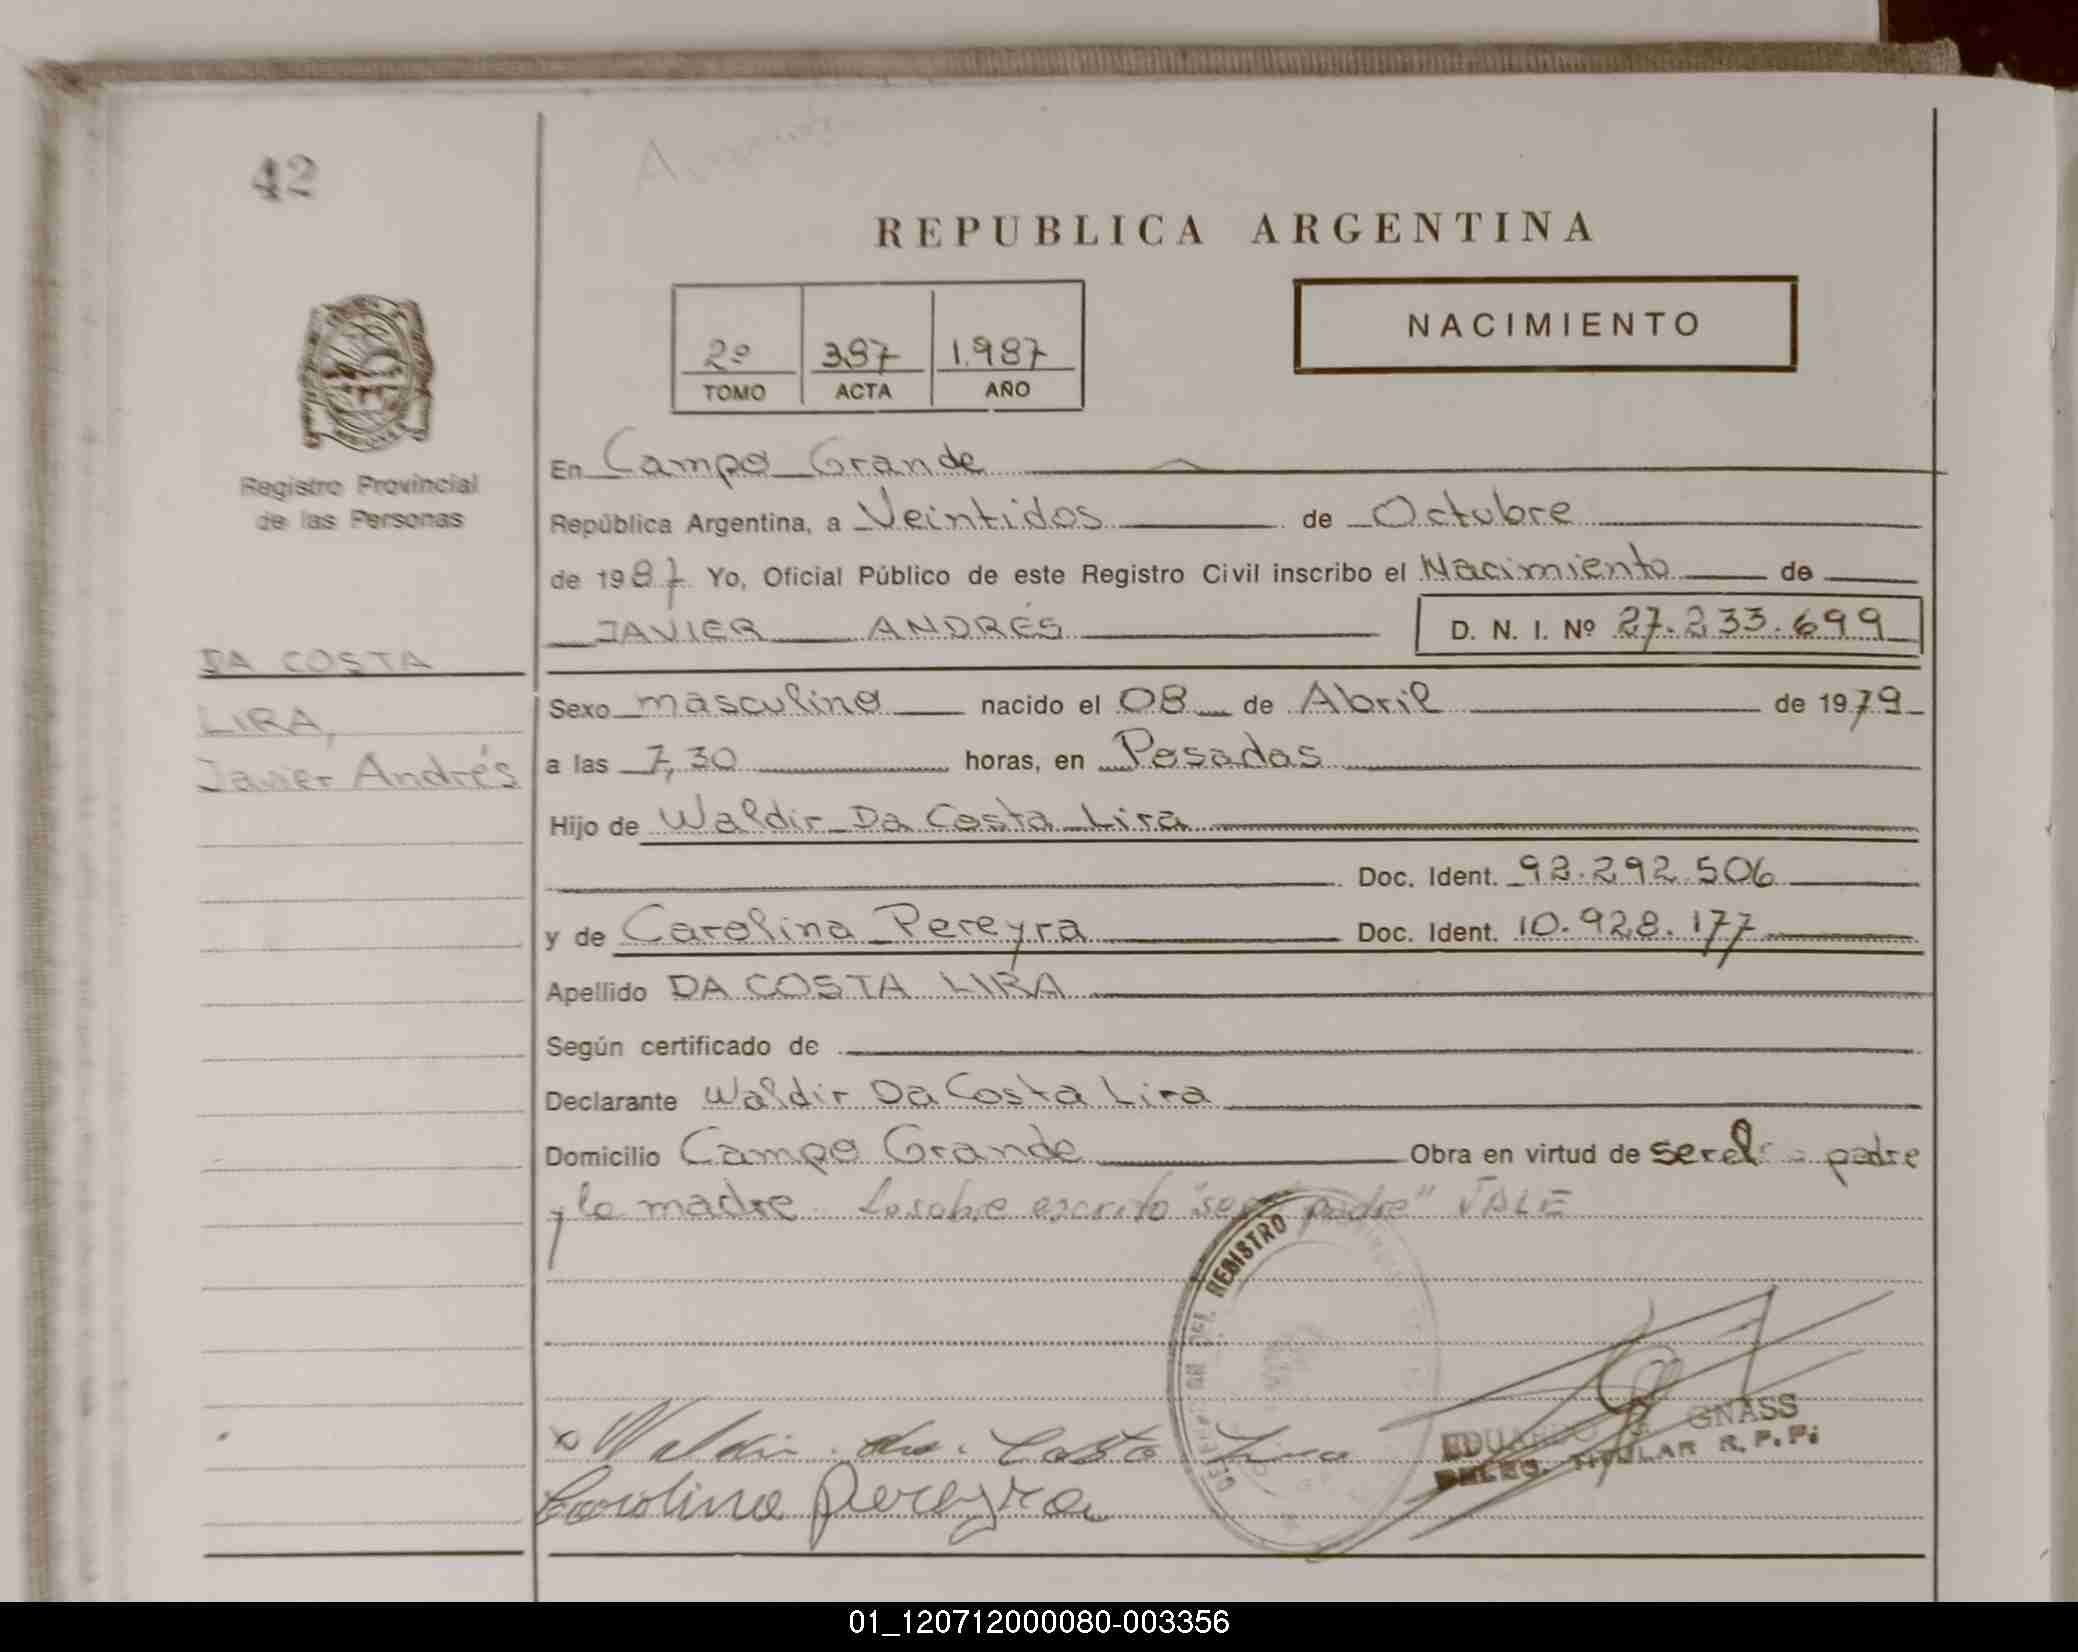 42
REPUBLICA ARGENTINA
NACIMIENTO
2º 387 1.987
TOMO ACTA AÑO
Registro Provincial
de las Personas
En Campo Grande
República Argentina, a Veintidos de Octubre
de 1987 Yo, Oficial Público de este Registro Civil inscribo el Nacimiento de
JAVIER ANDRÉS D. N. I. Nº 27.233.699
DA COSTA
LIRA,
Javier Andrés
Sexo masculino nacido el 08 de Abril de 1979
a las 7,30 horas, en Posadas
Hijo de Waldir Da Costa Lira
Doc. Ident. 92.292.506
y de Carolina Pereyra Doc. Ident. 10.928.177
Apellido DA COSTA LIRA
Según certificado de
Declarante Waldir Da Costa Lira
Domicilio Campo Grande Obra en virtud de ser el padre
y la madre Lo sobre escrito "ser padre" VALE
REGISTRO
Waldir da Costa Lira
EDUARDO GNASS
DELEG. TITULAR R.P.P.
Carolina Pereyra
01_120712000080-003356